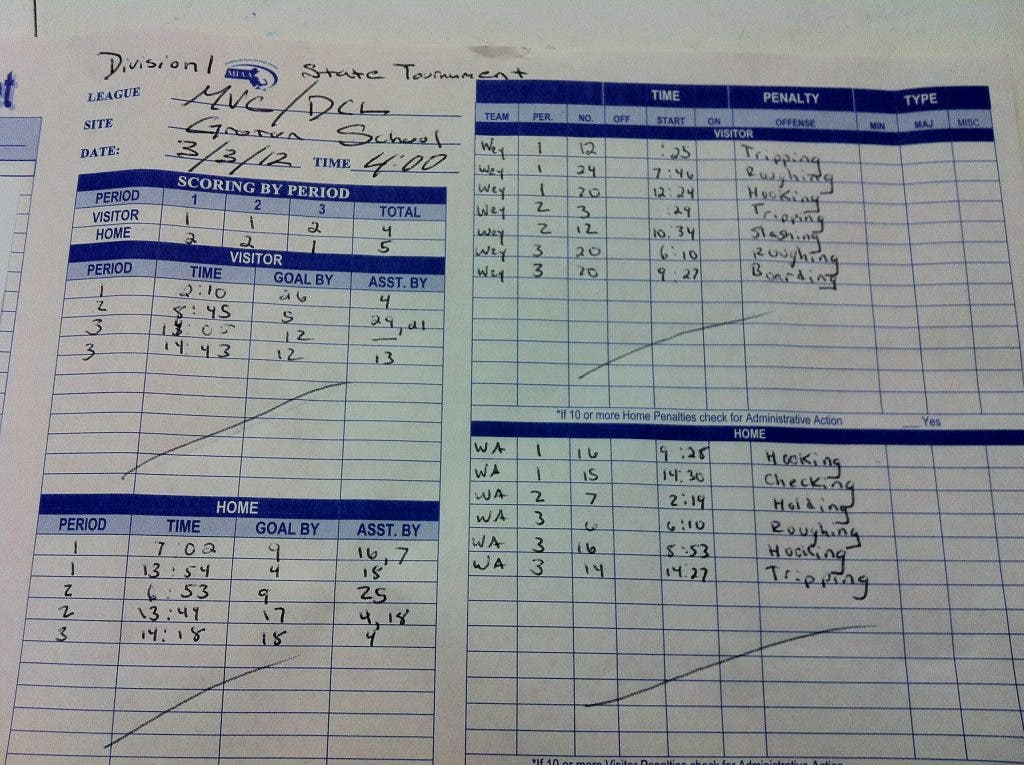 Division 1 MIAA State Tournament
LEAGUE MVC/DCL
SITE Groton School
DATE: 3/3/12 TIME 4:00
SCORING BY PERIOD
PERIOD 1 2 3 TOTAL
VISITOR 1 1 2 4
HOME 2 2 1 5
VISITOR
PERIOD TIME GOAL BY ASST. BY
1 2:10 26 4
2 8:45 5 24, 21
3 12 —
3 14:43 12 13
HOME
PERIOD TIME GOAL BY ASST. BY
1 7:02 9 16, 7
1 13:54 4 15
2 6:53 9 25
2 13:49 17 4, 18
3 14:18 15 4
TIME PENALTY TYPE
TEAM PER. NO. OFF START ON OFFENSE MIN MAJ MISC
VISITOR
Wey 1 12 :25 Tripping
Wey 1 24 7:46 Roughing
Wey 1 20 12:24 Hooking
Wey 2 3 :24 Tripping
Wey 2 12 10:34 Slashing
Wey 3 20 6:10 Roughing
Wey 3 20 9:27 Boarding
*If 10 or more Home Penalties check for Administrative Action ___ Yes
HOME
WA 1 16 9:28 Hooking
WA 1 15 14:30 Checking
WA 2 7 2:19 Holding
WA 3 6 6:10 Roughing
WA 3 16 8:53 Hooking
WA 3 14 14:27 Tripping
*If 10 or more Visitor Penalties check for Administrative Action